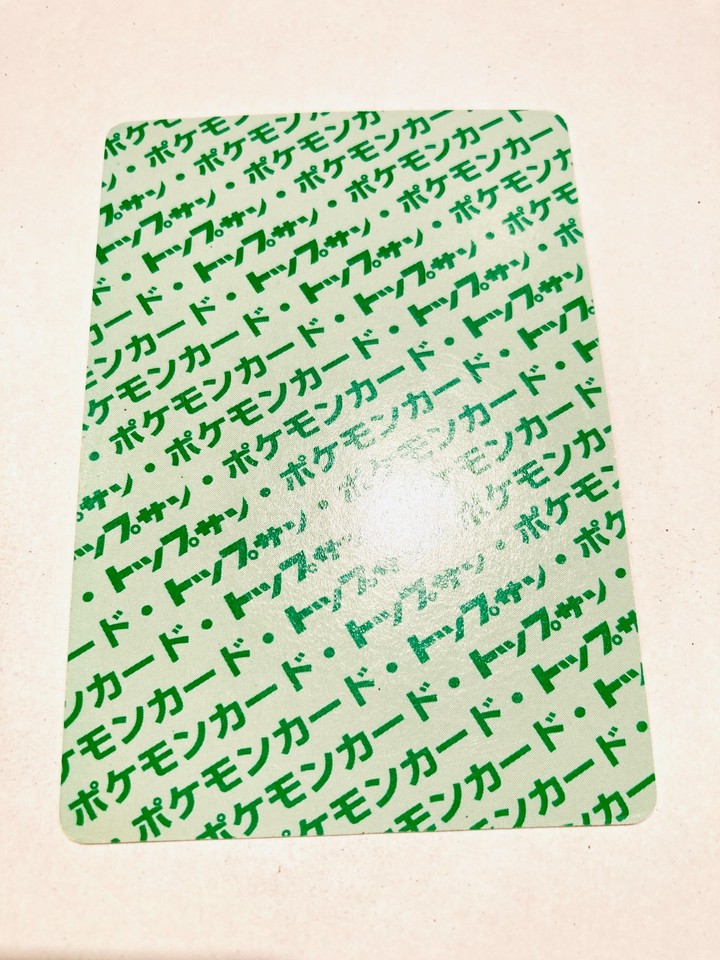 ポケモ
・ポケモン
プサン・ポケモンカ
トップサン・ポケモンカード
ド・トップサン・ポケモンカード
カード・トップサン・ポケモンカー
ンカード・トップサン・ポケモン
ケモンカード・トップサン・ポケモ
ポケモンカード・トップサン・ポ
・ポケモンカード・トップサン
サン・ポケモンカード・トップ
ップサン・ポケモンカード・ト
・トップサン・ポケモンカード
ード・トップサン・ポケモンカ
ンカード・トップサン・ポケモン
モンカード・トップサン・ポケ
ポケモンカード・トップサン・
・ポケモンカード・トップサ
ポケモンカード・トッ
ポケモンカード・
ンカ